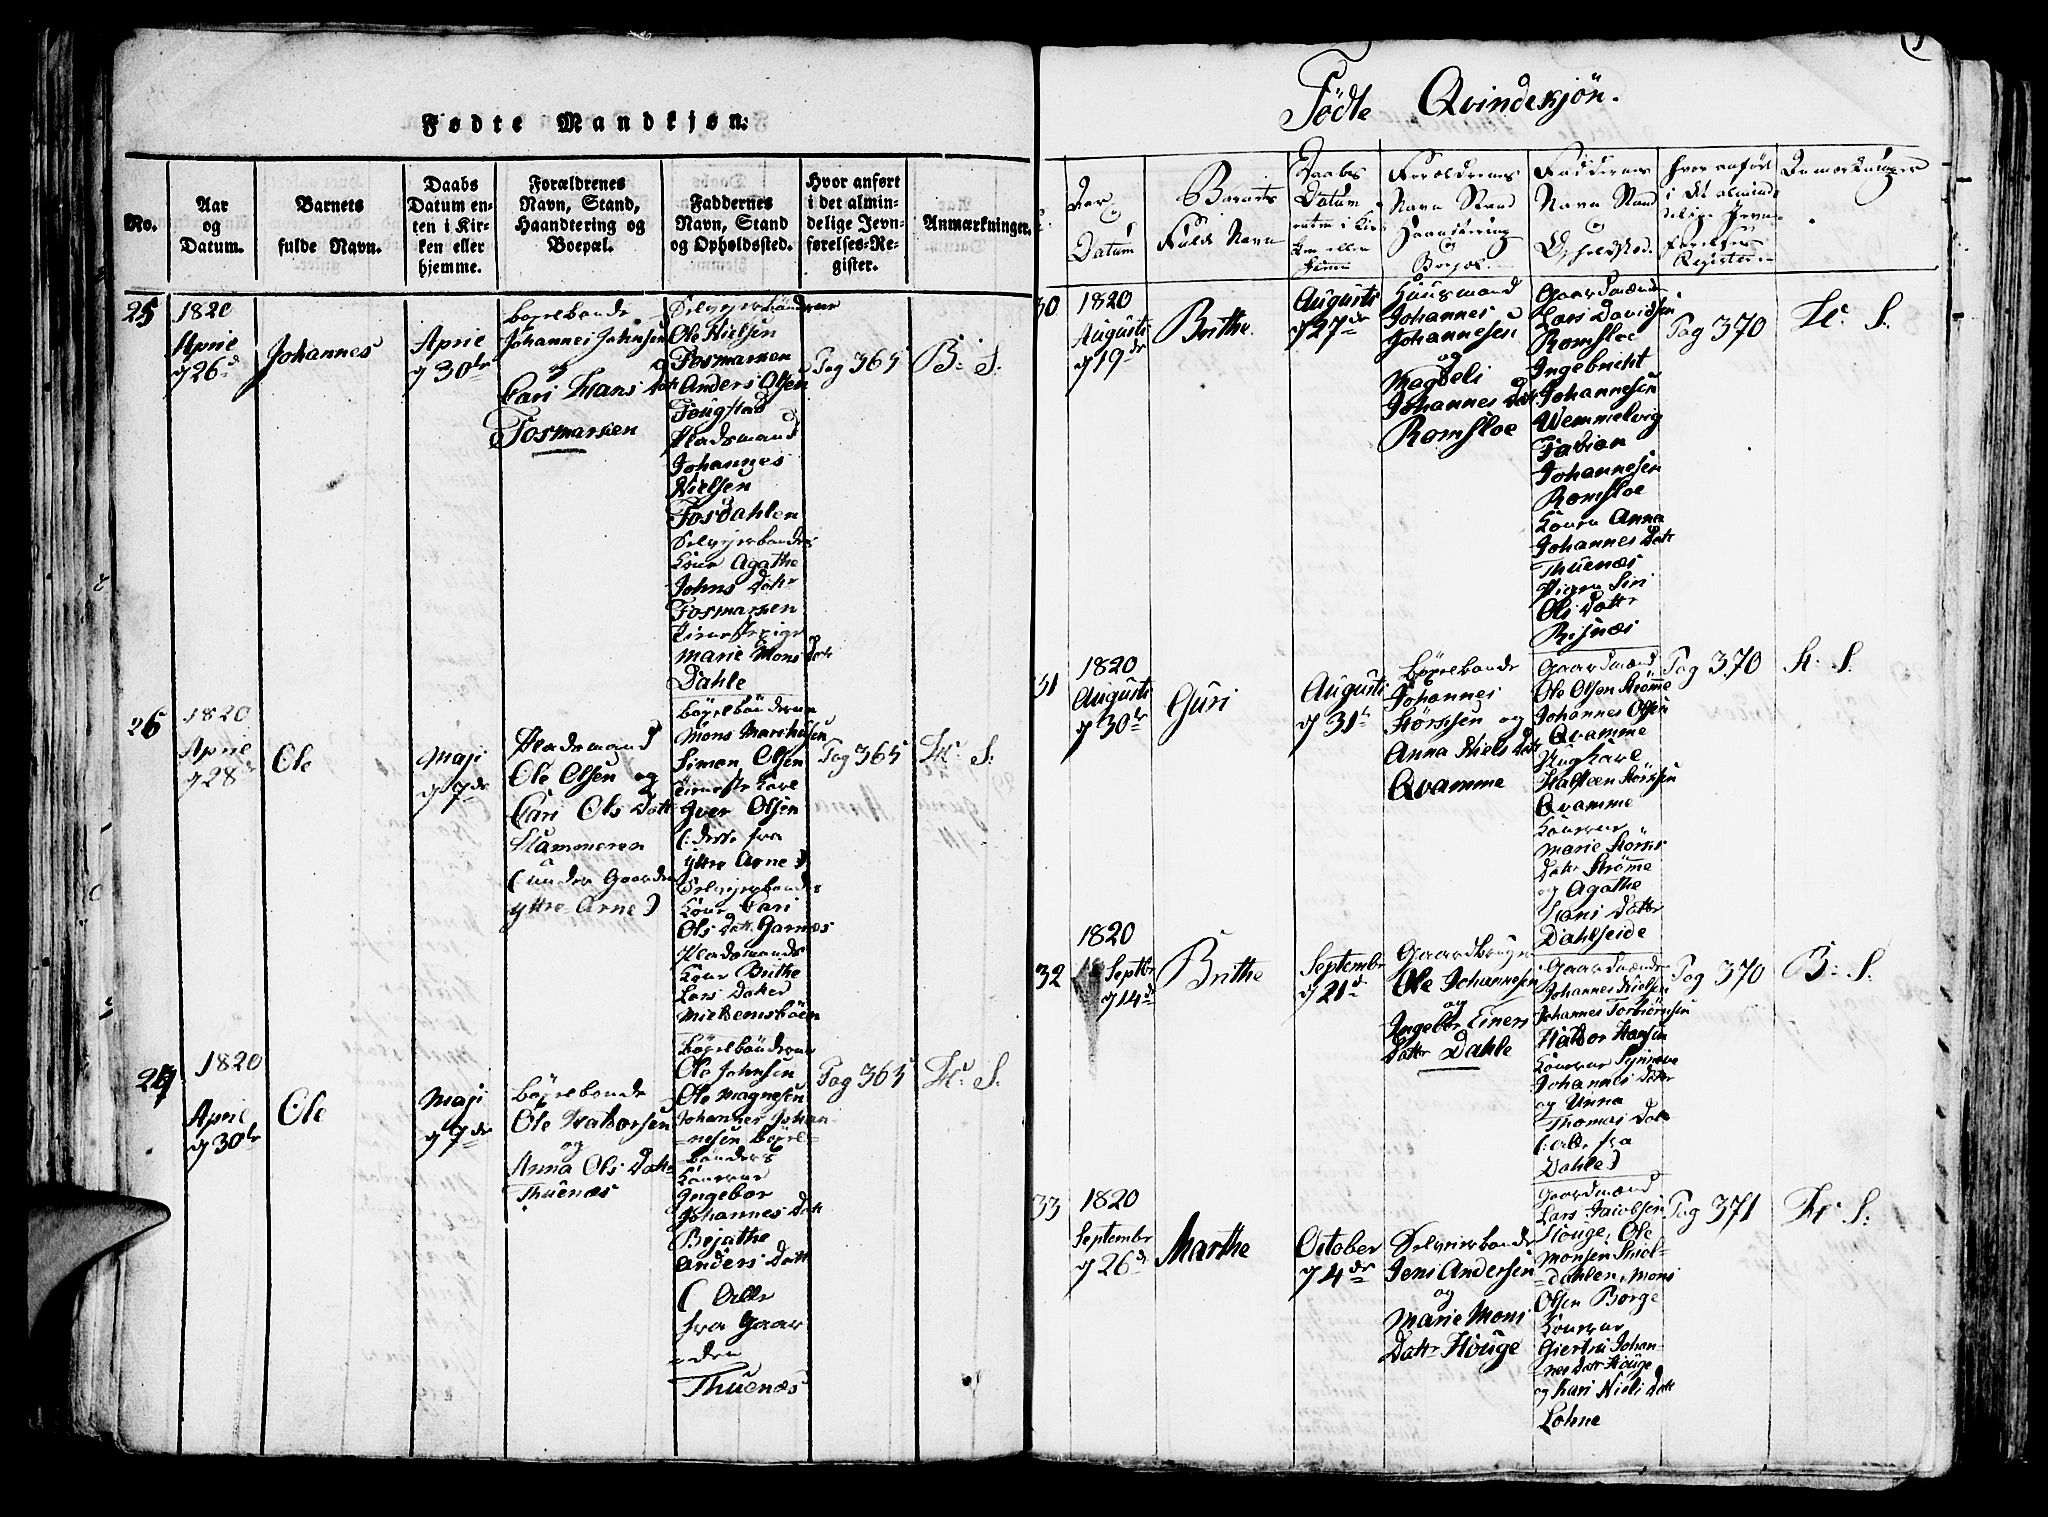 Fødte Mandkjøn:
No.
Aar
og
Datum.
Barnets
fulde Navn.
Daabs
Datum en-
ten i Kir-
ken eller
hjemme.
Forældrenes
Navn, Stand,
Haandtering og
Boepæl.
Faddernes
Navn, Stand
og Opholdssted.
Hvor anført
i det almin-
delige Jevn-
førelses-Re-
gister.
Anmærkninger.
25
1820
Aprie
d 26d
Johannes
Aprie
d 30te
Johannes Johnsen
og
Cari Hans Datr
Fosmarken
Selvejerbönderne
Ole Nielsen
Fosmarken
Anders Olsen
Fougstad
Pladsmand
Johannes
Nielsen
Fosdahlen
Kone Agathe
Johns Datr
Fosmarken
Marie Mons Datr
Dahle
Pag 365
B: S.
26
1820
Aprie
d 28de
Ole
Maji
d 7de
Pladsmand
Ole Olsen og
Cari Ols Datr
(under Gaarden
yttre Arne)
Simon Olsen
Iver Olsen
yttre Arne)
Kone Cari
Ols Datr Garnæs
Pladsmands
Kone Brithe
Lars Datter
Pag 365
H: S.
27
1820
Aprie
d 30te
Ole
Maji
d 7de
Ole Haldorsen
og
Anna Ols Datr
Thuenæs
Ole Johnsen
Ole Magnesen
Johannes Johan-
nesen
bönders
Konerne
Ingebor
Johannes Datr
Anders Datr
(alle
fra Gaar
den
Thuenæs
Pag 365
H: S.
Födte Qvindekjön.
Aar
og
Datum
Barnets
Fulde Navn
Daabs
Datum
Forældrenes
Navn Stand
Haandtering
og
Boepæl.
Faddernes
Navn Stand
og
Opholdsted.
Hvor anført
i det almind-
elige Jevn-
førelses
Register
Anmærkninger
30
1820
Augusti
d 19de
Brithe.
Augusti
d 27de
Huusmand
Johannes
Johannesen
og
Magdeli
Johannes Datr
Romsloe
Gaardmænd
Lars Davidsen
Romsloe
Ingebricht
Johannesen
Wemmelvig
Fabian
Johannesen
Romsloe
Konen Anna
Johannes Datr
Thuenæs
Pigen Siri
Ols Datr
Risnæs
Pag 370
H: S.
31
1820
Augusti
d 30te
Guri
Augusti
d 31te
Johannes
Störksen og
Anna Niels Datr
Qvamme
Gaardmænd
Ole Olsen Strömme
Johannes Olsen
Qvamme
Ungkarl
Halsteen Störksen
Qvamme
Konerne
Marie Störks
Datr Strömme
og Agathe
Datter
Dahlseide
Pag 370
H. S.
32
1820
Septbr
d 14de
Brithe
September
d 21de
Gaardbruger
Ole Johannesen
og
Ingebor Einers
Datr Dahle
Gaardmænd
Johannes Nielsen
Johannes Torbiörnsen
Haldor Hansen
Konerne Synneva
Johannes Datr
og Unna
Thomas Datr
(: alle fra
Dahle)
Pag 370
B: S.
33
1820
September
d 26de
Marthe
October
d 4de
Selveierbonde
Jens Andersen
og
Marie Mons
Datr Houge
Gaardmænd
Lars Jacobsen
Houge, Ole
Monsen
Dahlen, Mons
Olsen Borge
Konerne
Giertru Johan-
nes Datr Houge
og Kari Niels Datr
Lohne
Pag 371
H: S: